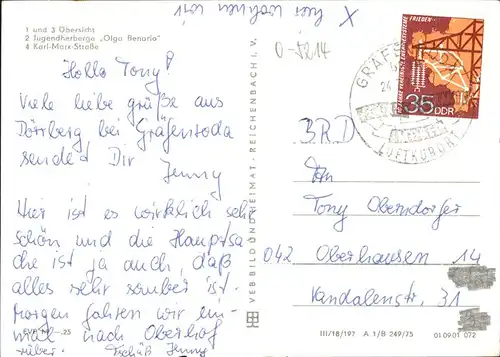 hier wohnen wir X
1 und 3 Übersicht
2 Jugendherberge „Olga Benario"
4 Karl-Marx-Straße
Hallo Tony!
Viele liebe grüße aus
Dörrberg bei Gräfenroda
sendet Dir Jenny
Hier ist es wirklich sehr
schön und die Hauptsa
che ist ja auch, daß
alles sehr sauber ist.
Morgen fahren wir ein
mal nach Oberhof
rüber. Tschüß Jenny
EVP MDN -,25
VEB BILD UND HEIMAT · REICHENBACH I. V.
0-5214
FRIEDEN
35 DDR
GRÄFENRODA
LUFTKURORT
BRD
An
Tony Oberndorfer
042 Oberhausen 14
Vandalenstr. 31
III/18/197 A 1/B 249/73 01 09 01 072